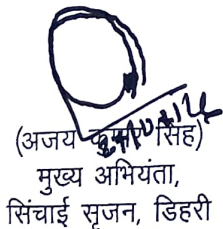 (अजय कुमार सिंह)
मुख्य अभियंता,
सिंचाई सृजन, डिहरी